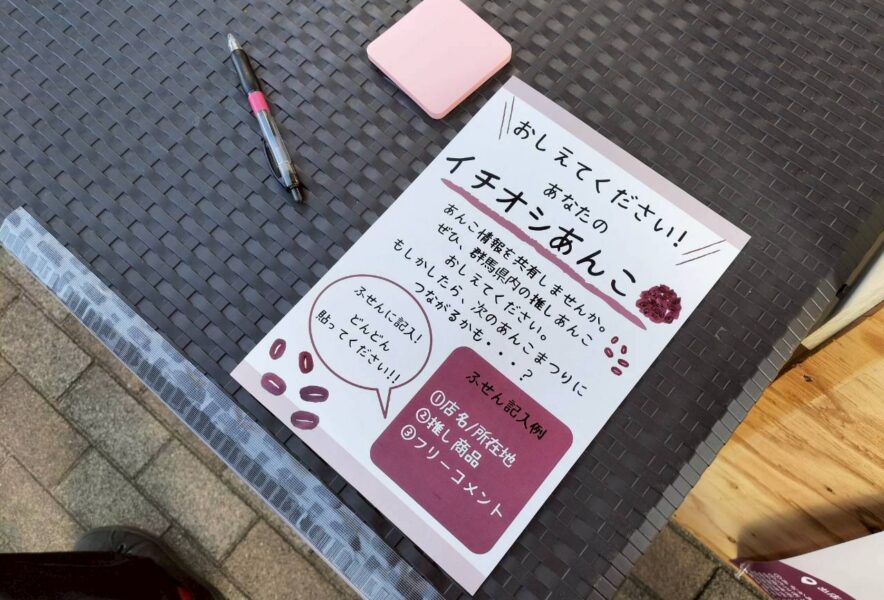 おしえてください!
あなたの
イチオシあんこ
あんこ情報を共有しませんか。
ぜひ、群馬県内の推しあんこ
おしえてください。
もしかしたら、次のあんこまつりに
つながるかも・・・?
ふせんに記入!
どんどん
貼ってください!!
ふせん記入例
①店名/所在地
②推し商品
③フリーコメント